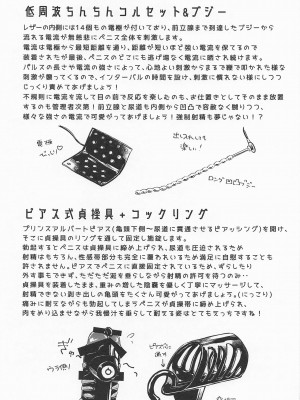 低周波ちんちんコルセット&ブジー
レザーの内側には14個もの電極が付いており、前立腺まで到達したブジーから
流れる電流が無慈悲にペニス全体を刺激します。
電流は電極から最短距離を通り、距離が短いほど強い電流を保てるので
装着されたが最後、ペニスのどこにも逃げ場なく電流に晒され続けます。
パルスの長さや電流の強さによって、心地よい刺激からまるで鞭で叩かれた様な
刺激が襲ってくるので、インターバルの時間を設け、刺激に慣れない様にしつつ
じっくりと責めてあげましょう!
不規則に電流を流して目の前で反応を楽しむのも、お仕置きとしてそのまま放置
するのも管理者次第!前立腺と尿道も内側から凹凸で容赦なく競りつつ、
様々な強さの電流で可愛がってあげましょう!強制射精も夢じゃない!?
ロング凹凸ブジー
ピアス式貞操具+コックリング
プリンスアルバートピアス(亀頭下側〜尿道に貫通させるピアッシング)を開け、
そこに貞操具のリングを通して固定し施錠します。
勃起するとペニスは貞操具に締められ、尿道も圧迫されるため
射精はもちろん、性感帯部分も完全に覆われているため満足に自慰することも
許されません。ピアスでペニスに直接固定されているため、ずらしたり
外す事もできず、ただただ涎を垂らしながら射精の許可を待つのみ…
貞操具を装着したまま、重みの増した陰嚢を優しく丁寧にマッサージして、
射精できない剥き出しの亀頭をたくさん可愛がってあげましょう。(にっこり)
痛みに耐えながらも勃起してしまうペニスが貞操具に締め上げられ、
肉をめり込ませながら我慢汁を垂らして耐える姿はとてもえっちですね!